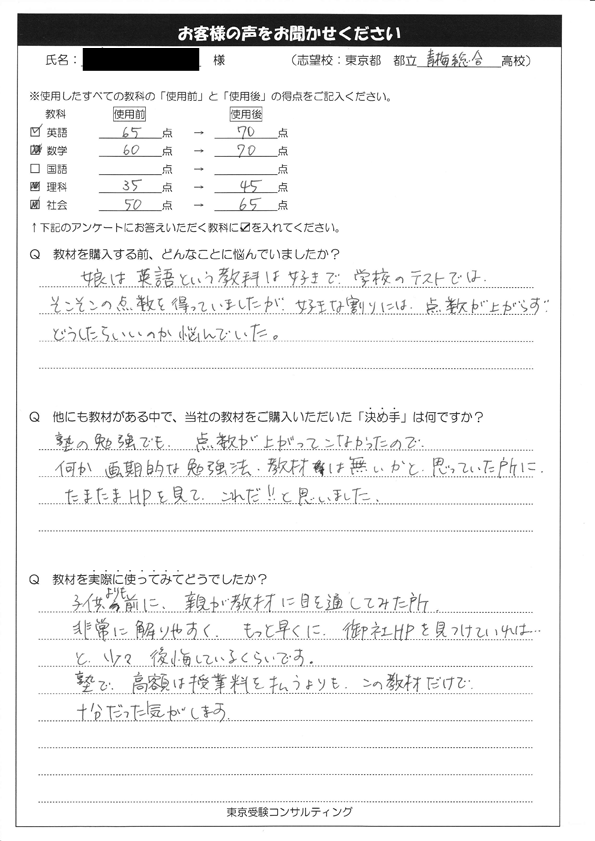 お客様の声をお聞かせください
氏名： 様 （志望校：東京都 都立 青梅総合 高校）
※使用したすべての教科の「使用前」と「使用後」の得点をご記入ください。
教科 使用前 使用後
☑ 英語 65 点 → 70 点
☑ 数学 60 点 → 70 点
□ 国語 点 → 点
☑ 理科 35 点 → 45 点
☑ 社会 50 点 → 65 点
↑下記のアンケートにお答えいただく教科に☑を入れてください。
Q 教材を購入する前、どんなことに悩んでいましたか？
娘は英語という教科は好きで、学校のテストでは、
そこそこの点数を得っていましたが、好きな割りには、点数が上がらず、
どうしたらいいのか悩んでいた。
Q 他にも教材がある中で、当社の教材をご購入いただいた「決め手」は何ですか？
塾の勉強でも、点数が上がってこなかったので、
何か画期的な勉強法・教材は無いかと、思っていた所に、
たまたまHPを見て、これだ!!と思いました。
Q 教材を実際に使ってみてどうでしたか？
子供よりも前に、親が教材に目を通してみた所、
非常に解りやすく、もっと早くに、御社HPを見つけていれば…
と、少々後悔しているくらいです。
塾で、高額は授業料を払うよりも、この教材だけで、
十分だった気がします。
東京受験コンサルティング